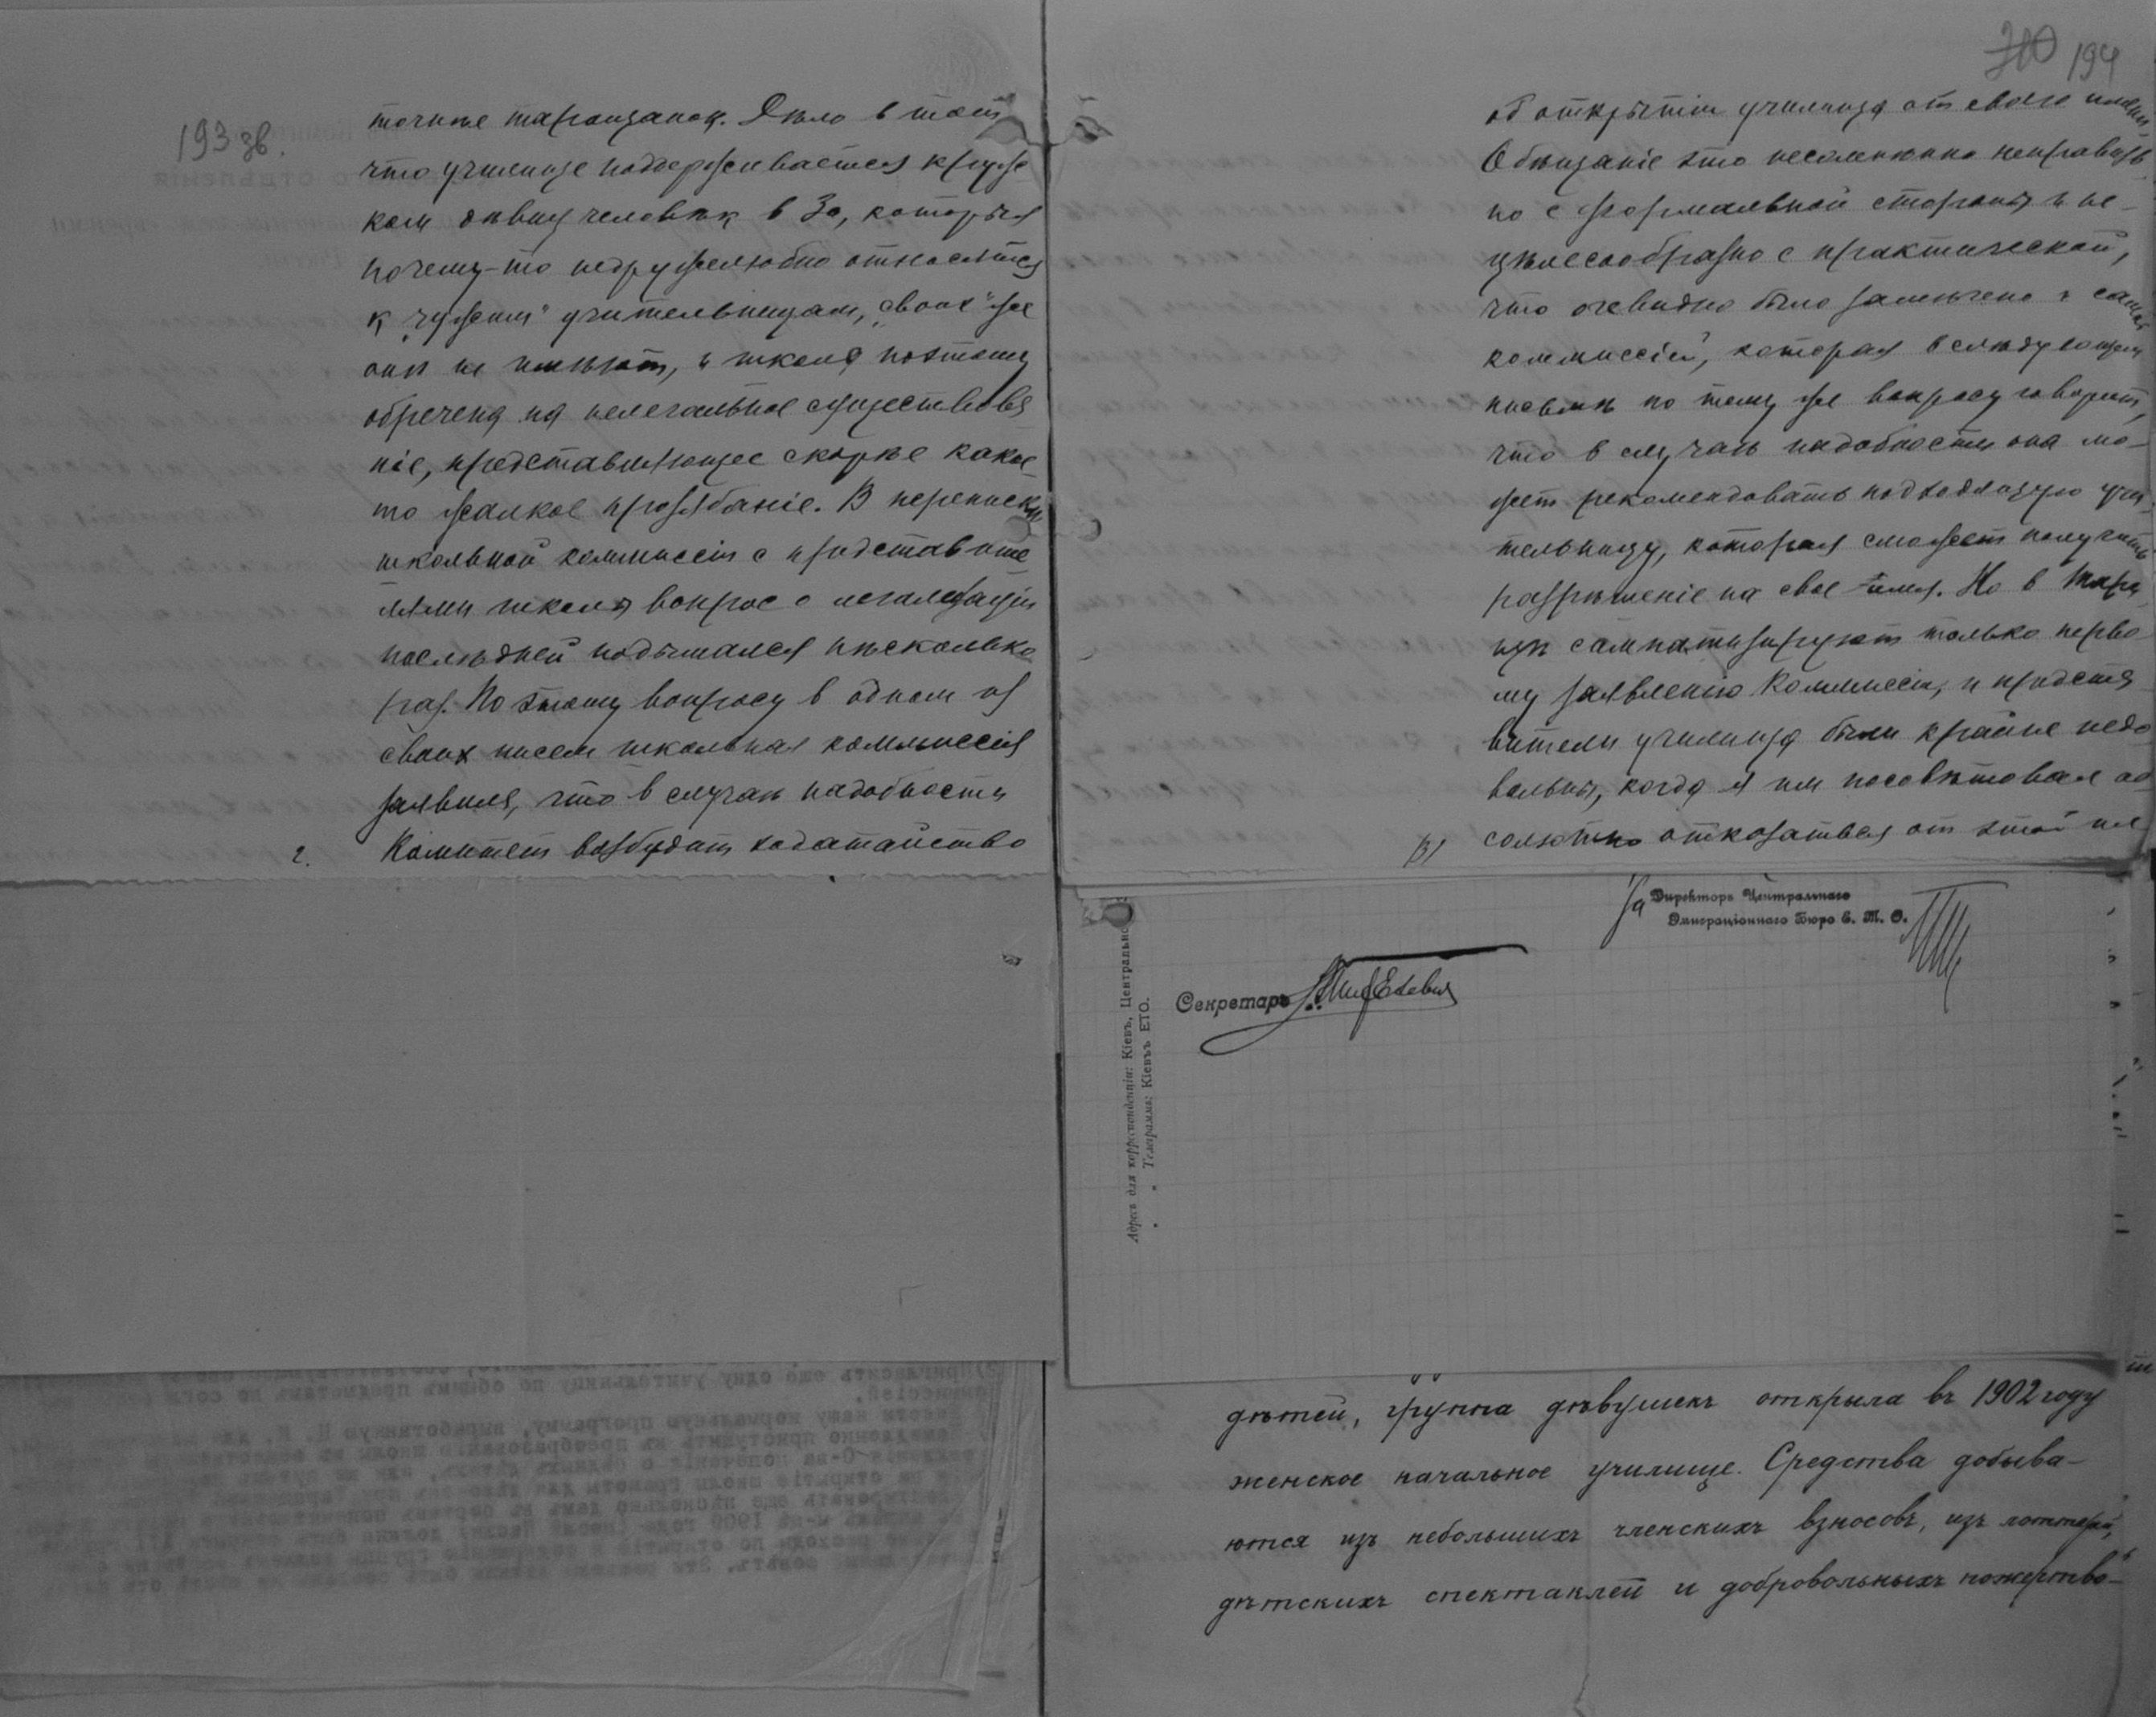 193 зв.
точнѣе таращанок. Дѣло в том
что училище поддерживается круж
ком дѣвиц человѣк в 30, которыя
почему-то недружелюбно относятся
к „чужим" учительницам, „своих" же
они не имѣют, и школа поэтому
обречена на нелегальное существова
ніе, представляющее скорѣе какое
то жалкое прозябаніе. В перепискѣ
школьной коммиссіи с представите
лями школы вопрос о легализаціи
послѣдней подымался нѣсколько
раз. По этому вопросу в одном из
своих писем школьная коммиссія
заявила, что в случаѣ надобности
2. Комитет возбудит ходатайство
310 194
об открытіи училища от своего имени,
Обѣщаніе это несомнѣнно неправиль
но с формальной стороны и не-
цѣлесообразно с практической,
что очевидно было замѣчено и самой
коммиссіей, которая в слѣдующем
письмѣ по тому же вопросу говорит,
что в случаѣ надобности она мо-
жет рекомендовать подходящую учи-
тельницу, которая сможет получить
разрѣшеніе на свое имя. Но в Тара
щѣ симпатизируют только перво
му заявленію Коммиссіи, и предста
вители училища были крайне недо
вольны, когда я им посовѣтовал аб
солютно отказаться от этой
За Директоръ Центральнаго
Эмиграціоннаго Бюро Е. Т. О.
Секретарь
Адресъ для корреспонденціи: Кіевъ, Центрально
" " Телеграммъ: Кіевъ ЕТО.
дѣтей, группа дѣвушекъ открыла въ 1902 году
женское начальное училище. Средства добыва-
ются изъ небольшихъ членскихъ взносовъ, изъ лоттерей,
дѣтскихъ спектаклей и добровольныхъ пожертво-